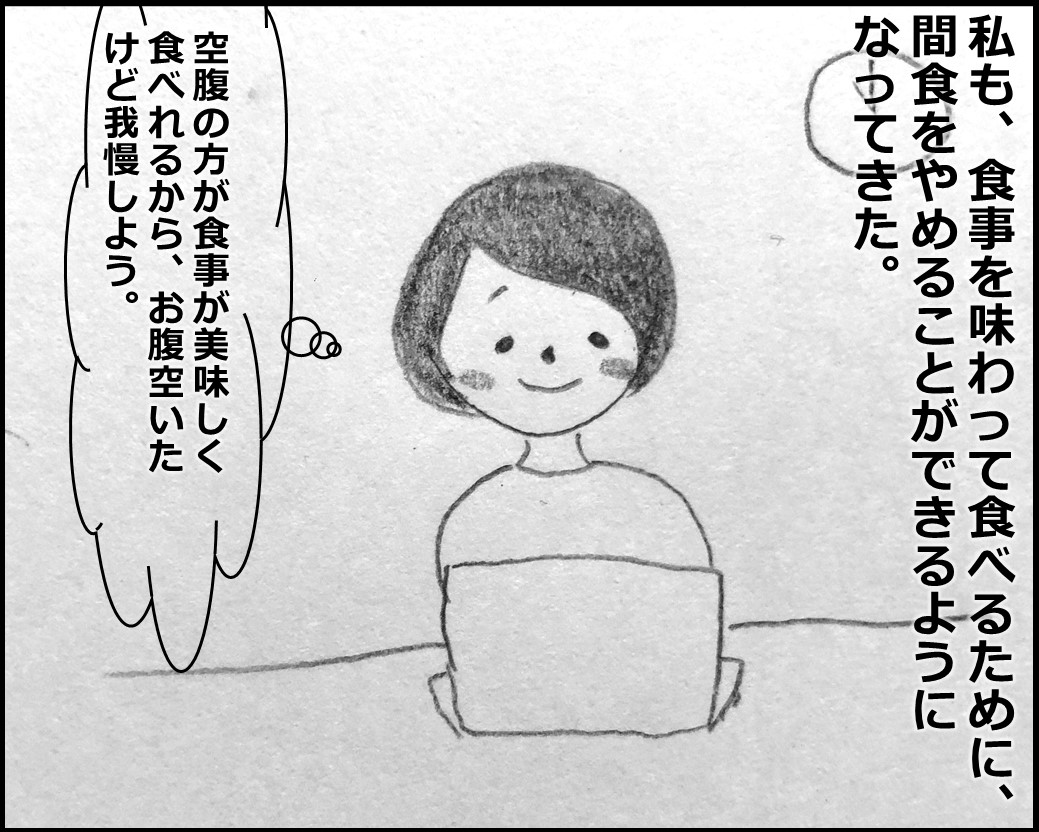 私も、食事を味わって食べるために、
間食をやめることができるように
なってきた。
空腹の方が食事が美味しく
食べれるから、お腹空いた
けど我慢しよう。